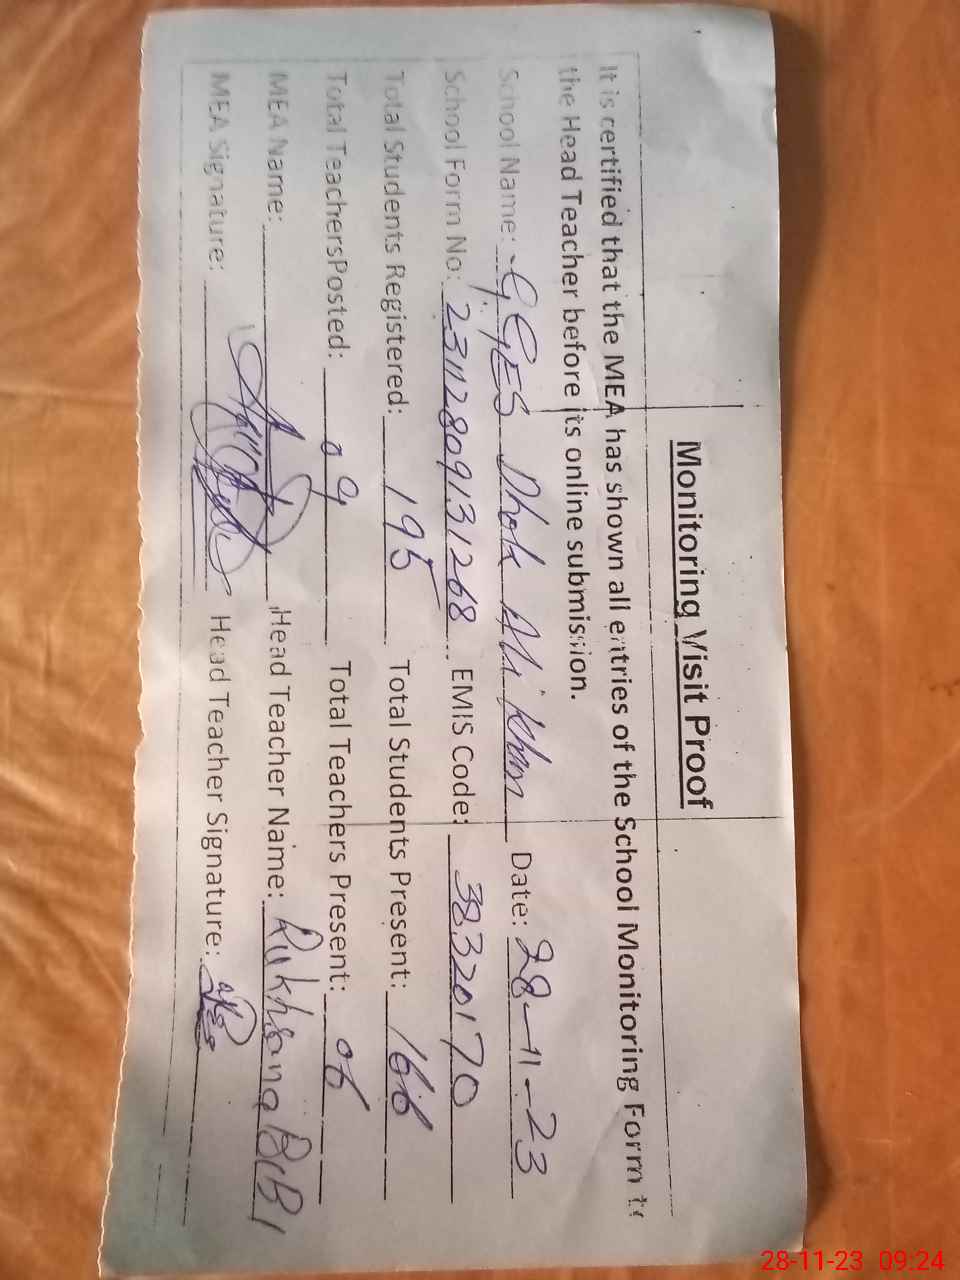 Monitoring Visit Proof
It is certified that the MEA has shown all entries of the School Monitoring Form to
the Head Teacher before its online submission.
School Name: GGES Dhok Ali Khan Date: 28-11-23
School Form No: 23112809131268 EMIS Code: 38320170
Total Students Registered: 195 Total Students Present: 166
Total TeachersPosted: 09 Total Teachers Present: 06
MEA Name: Head Teacher Name: Rukhsana BiBi
MEA Signature: Head Teacher Signature:
28-11-23 09:24